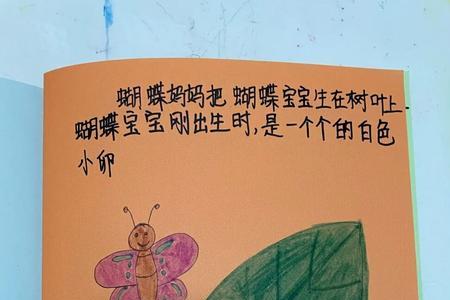 蝴蝶妈妈把蝴蝶宝宝生在树叶上.
蝴蝶宝宝刚出生时,是一个个的白色
小卵